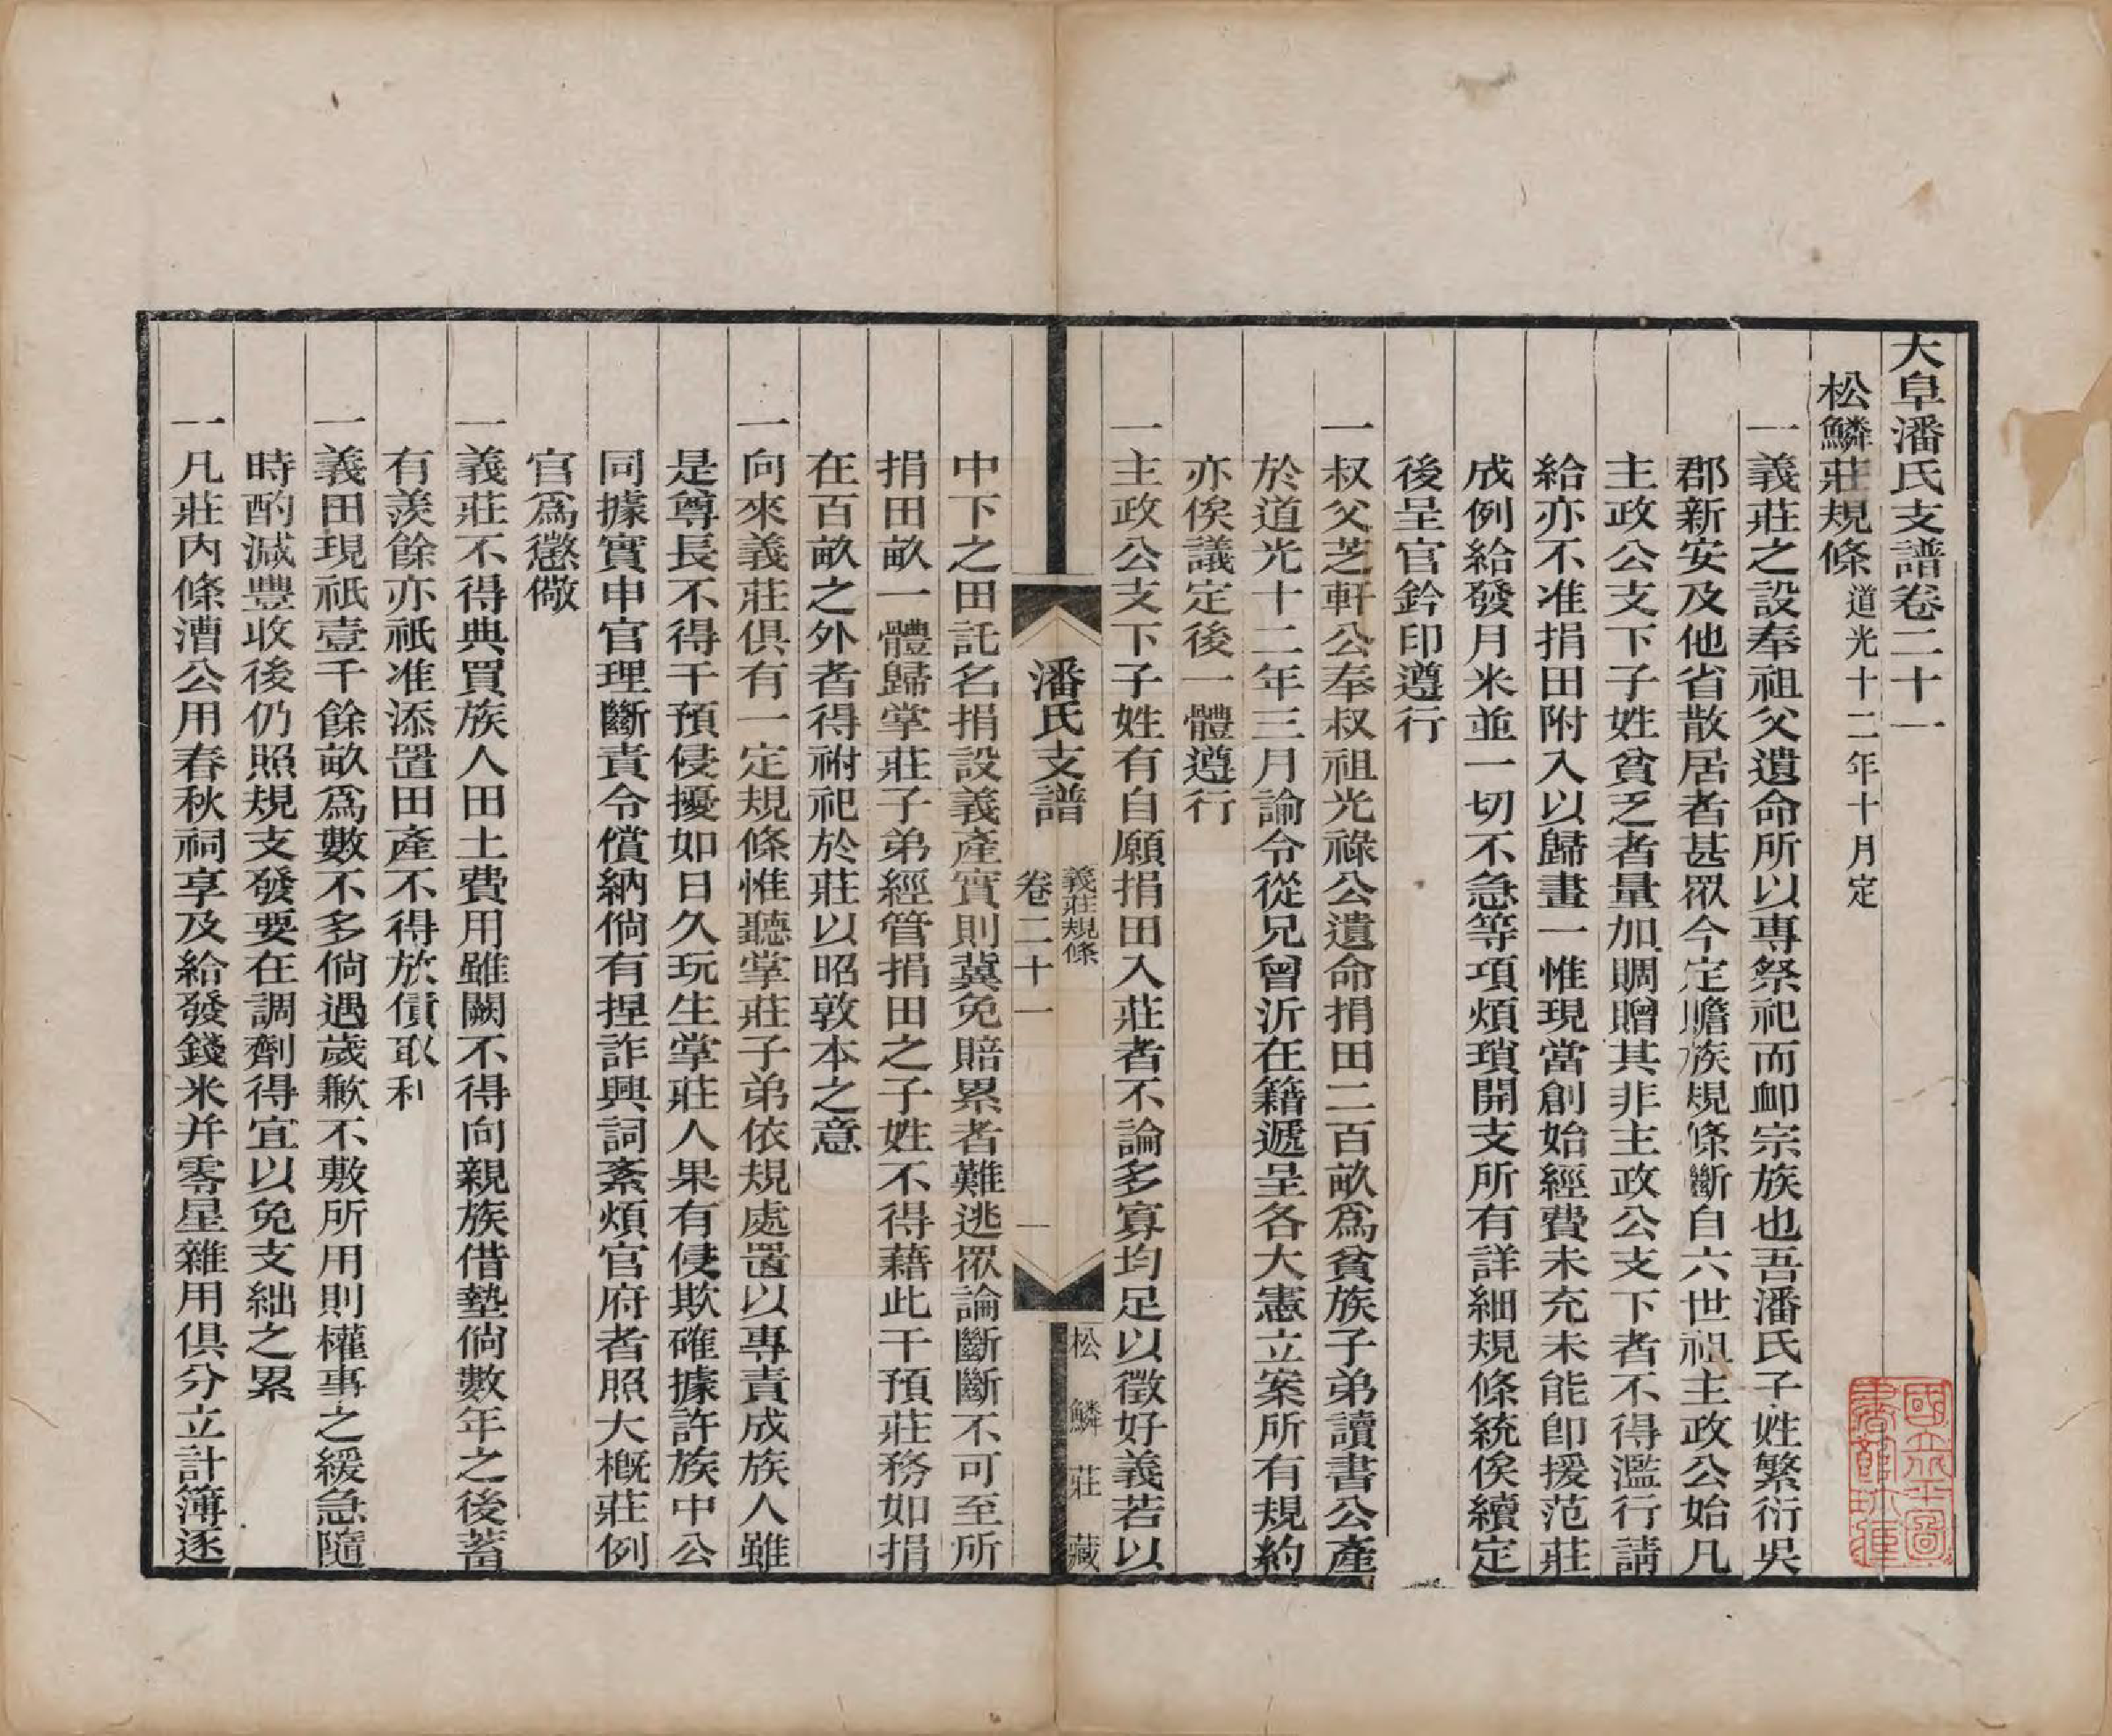 大阜潘氏支譜卷二十一
松鱗莊規條道光十二年十月定
一義莊之設奉祖父遺命所以專祭祀而卹宗族也吾潘氏子姓繁衍吳
郡新安及他省散居者甚眾今定贍族規條斷自六世祖主政公始凡
主政公支下子姓貧乏者量加賙贈其非主政公支下者不得濫行請
給亦不准捐田附入以歸畫一惟現當創始經費未充未能即援范莊
成例給發月米並一切不急等項煩瑣開支所有詳細規條統俟續定
後呈官鈐印遵行
一叔父芝軒公奉叔祖光祿公遺命捐田二百畝為貧族子弟讀書公產
於道光十二年三月諭令從兄曾沂在籍遞呈各大憲立案所有規約
亦俟議定後一體遵行
一主政公支下子姓有自願捐田入莊者不論多寡均足以徵好義若以
潘氏支譜
義莊規條
卷二十一
一
松鱗莊藏
中下之田託名捐設義產實則冀免賠累者難逃眾論斷斷不可至所
捐田畝一體歸掌莊子弟經管捐田之子姓不得藉此干預莊務如捐
在百畝之外者得祔祀於莊以昭敦本之意
一向來義莊俱有一定規條惟聽掌莊子弟依規處置以專責成族人雖
是尊長不得干預侵擾如日久玩生掌莊人果有侵欺確據許族中公
同據實申官理斷責令償納倘有捏詐興詞紊煩官府者照大概莊例
官為懲儆
一義莊不得典買族人田土費用雖闕不得向親族借墊倘數年之後蓄
有羨餘亦祇准添置田產不得放債取利
一義田現祇壹千餘畝為數不多倘遇歲歉不敷所用則權事之緩急隨
時酌減豐收後仍照規支發要在調劑得宜以免支絀之累
一凡莊內條漕公用春秋祠享及給發錢米并零星雜用俱分立計簿逐